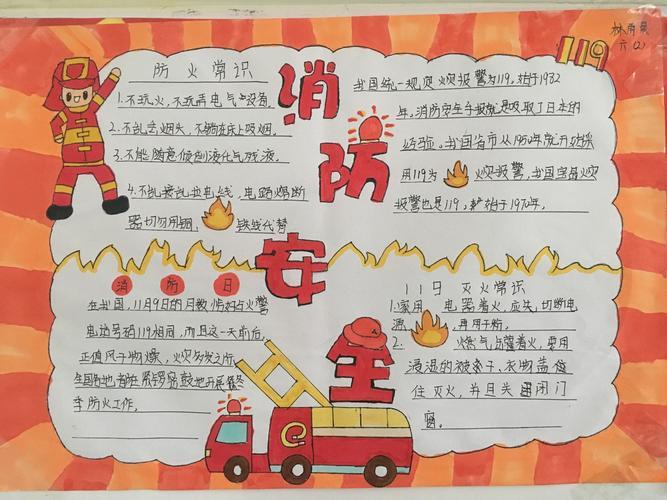 119
六(2)
消防安全
防火常识
1.不玩火,不玩弄电气设备。
2.不乱丢烟头,不躺在床上吸烟。
3.不能随意倾倒液化气残液。
4.不乱接乱拉电线,电路熔断
器切勿用铜、铁线代替
我国统一规定火灾报警为119,始于1982
年。消防安全手报就是吸取了日本的
经验。我国省市从1950年就开始采
用119为火灾报警,我国台湾火灾
报警也是119,始于1970年。
消防日
在我国,11月9日的月数恰好与火警
电话号码119相同,而且这一天前后,
正值风干物燥,火灾多发之际,
全国各地都在紧锣密鼓地开展冬
季防火工作。
119灭火常识
1.家用电器着火,应先切断电
源,再用干粉。
2.燃气点着火,要用
浸湿的被子、衣物盖
住灭火,并且关闭阀门